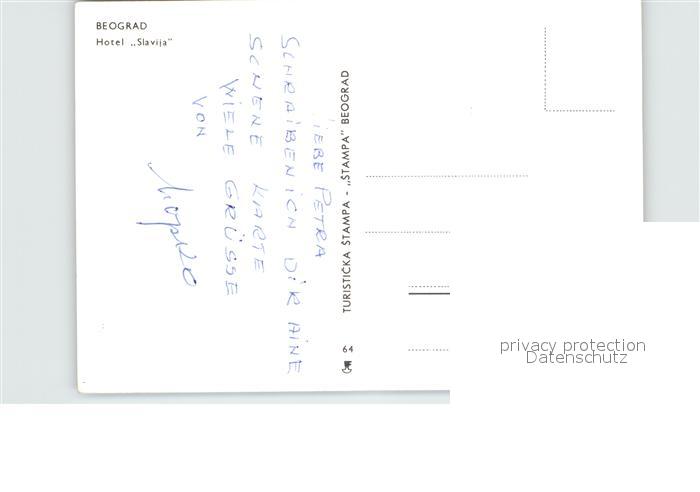 BEOGRAD
Hotel „Slavija"
LIEBE PETRA
SCHRAIBEN ICH DIR AINE
SCHENE KARTE
WIELE GRÜSSE
VON
TURISTIČKA ŠTAMPA - „ŠTAMPA" BEOGRAD
64
privacy protection
Datenschutz